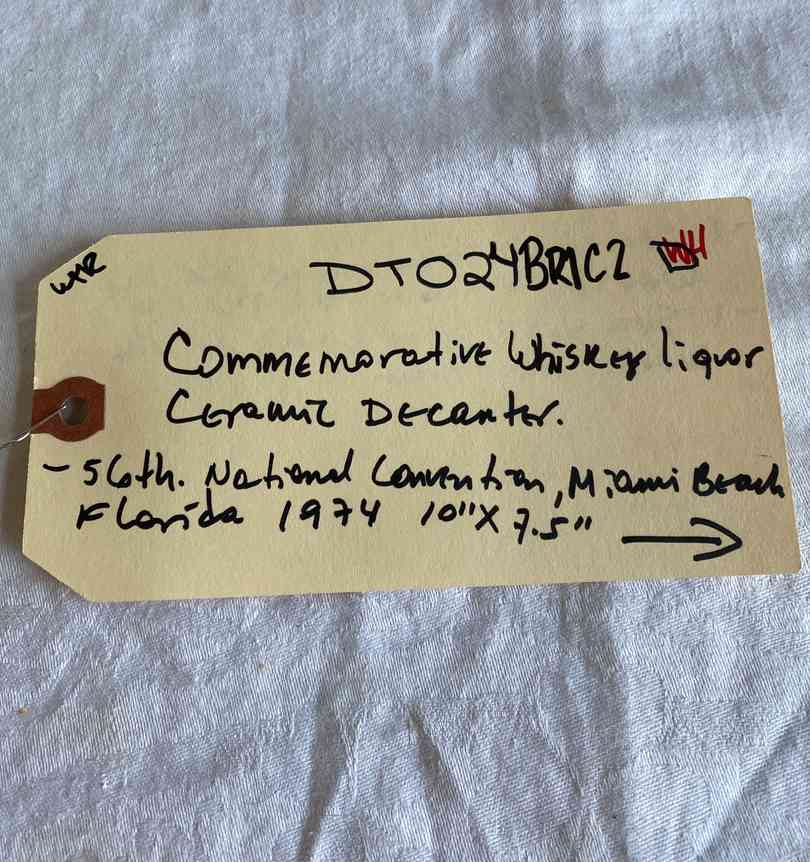 WHR
DT024BR1C2 WH
Commemorative Whiskey liquor
Ceramic Decanter.
- 56th. National Convention, Miami Beach
Florida 1974 10"X 7.5" →